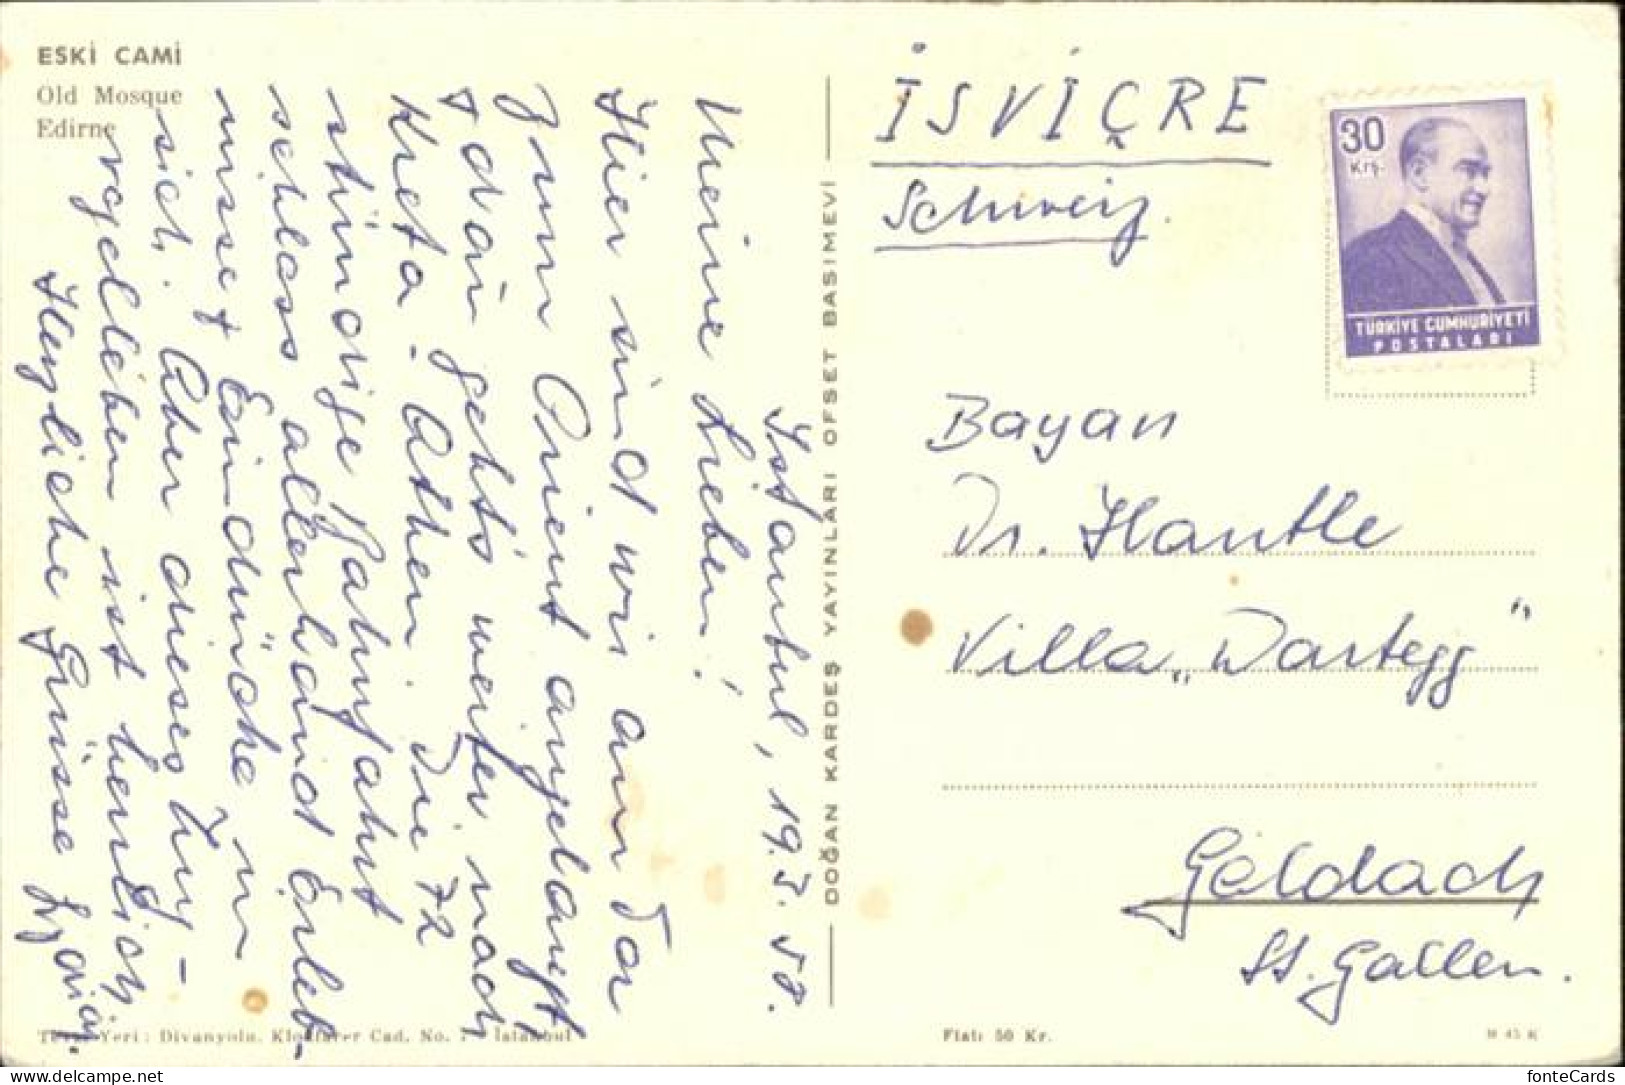 ESKİ CAMİ
Old Mosque
Edirne
Istanbul, 19.3.58.
Meine Lieben!
Hier sind wir am Tor
zum Orient angelangt
+ dann geht's weiter nach
Kreta - Athen. Die 72
stündige Bahnfahrt
schloss allerhand Erleb-
nisse + Eindrücke in
sich. Aber dieses Zug-
vogelleben ist herrlich
Herzliche Grüsse
DOĞAN KARDEŞ YAYINLARI OFSET BASIMEVİ
İSVİÇRE
Schweiz.
30
Krş.
TÜRKİYE CUMHURİYETİ
POSTALARI
Bayan
Dr. Hantle
Villa „Wartegg"
Goldach
St. Gallen.
Tevzi Yeri: Divanyolu, Klodfarer Cad. No. 7 - İstanbul
Fiatı 50 Kr.
fonteCards